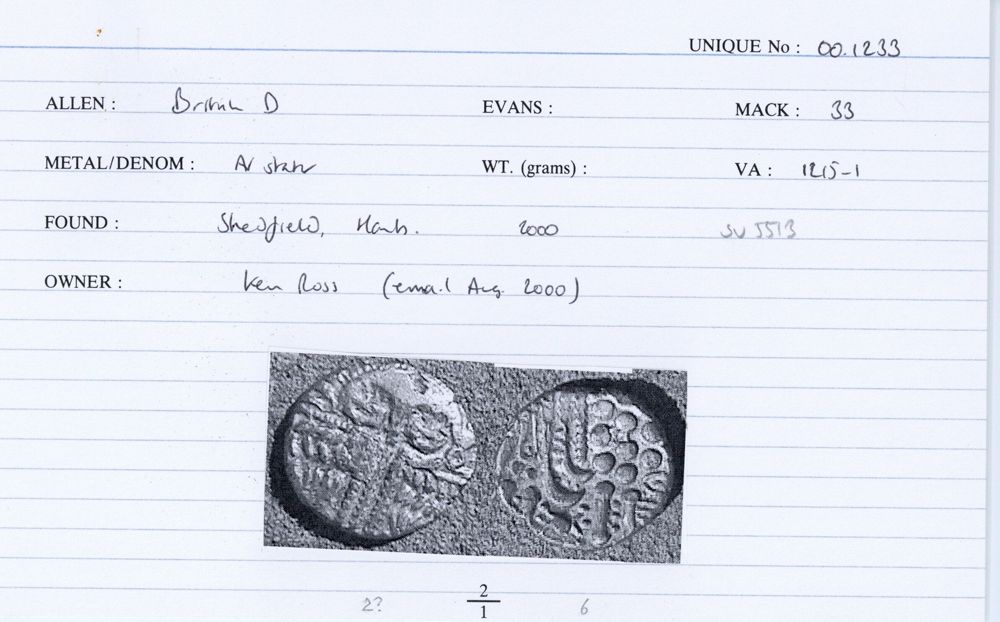 UNIQUE No : 00.1233
ALLEN : British D EVANS : MACK : 33
METAL/DENOM : AV stater WT. (grams) : VA : 1215-1
FOUND : Shedfield, Hants. 2000 SU 5513
OWNER : Ken Ross (email Aug 2000)
2? 2/1 6